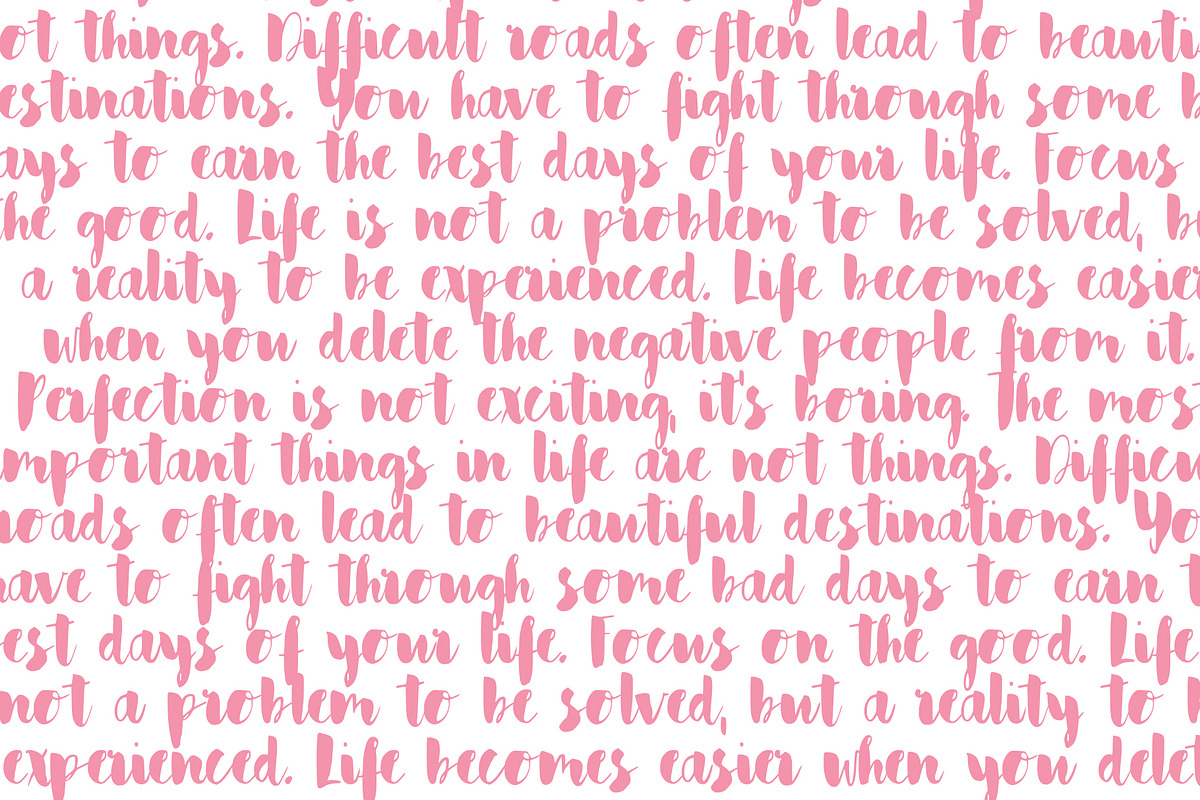 ot things. Difficult roads often lead to beauti
estinations. You have to fight through some b
ays to earn the best days of your life. Focus
he good. Life is not a problem to be solved, bu
a reality to be experienced. Life becomes easier
when you delete the negative people from it.
Perfection is not exciting, it's boring. The mos
mportant things in life are not things. Difficu
roads often lead to beautiful destinations. Yo
have to fight through some bad days to earn t
est days of your life. Focus on the good. Life
not a problem to be solved, but a reality to b
experienced. Life becomes easier when you delet